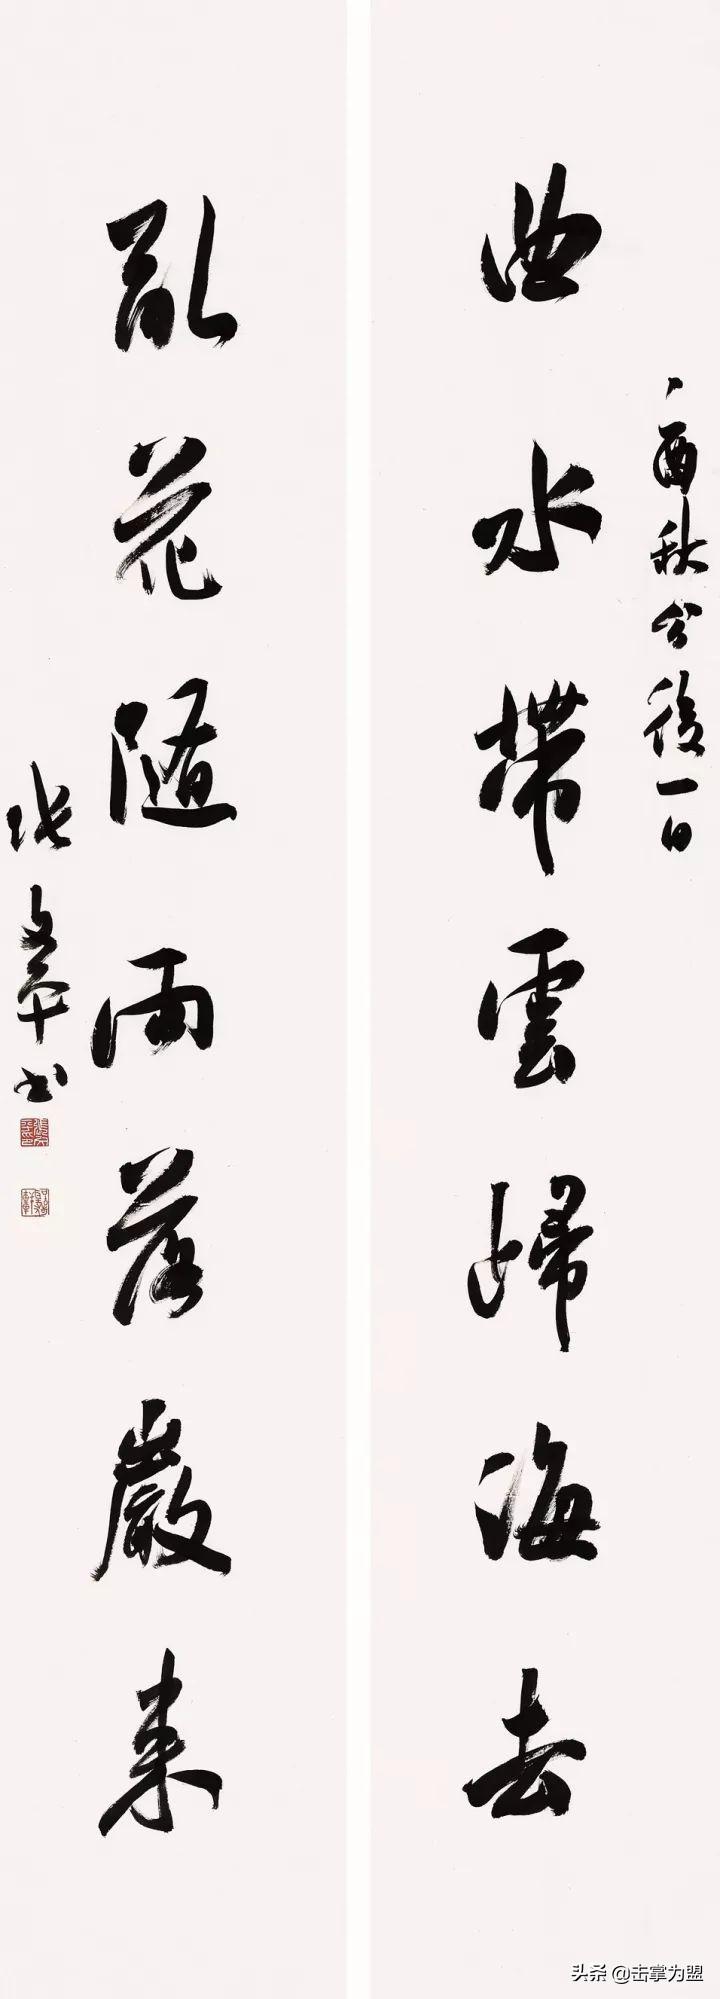 酉秋分後一日
曲水帶雲歸海去
亂花隨雨落巖來
張文平书
头条 @击掌为盟